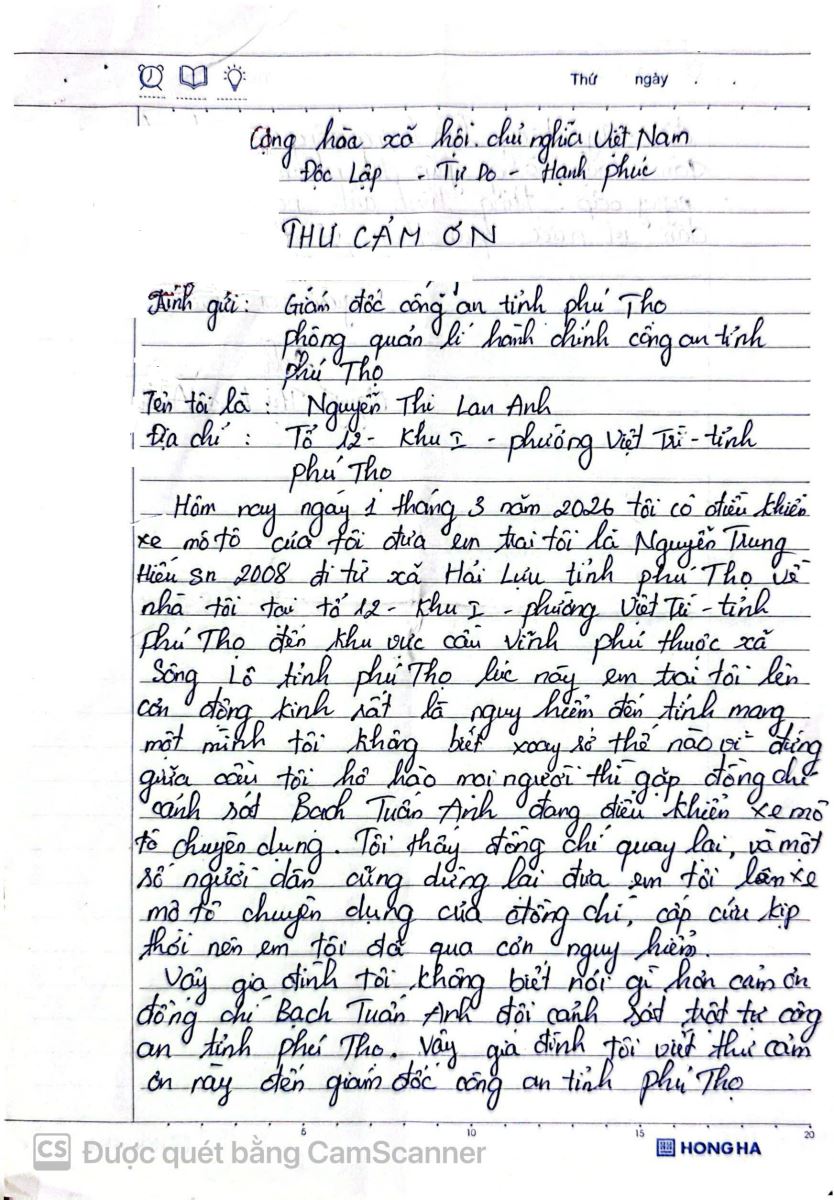 Thứ ngày . .
Cộng hòa xã hội chủ nghĩa Việt Nam
Độc Lập - Tự Do - Hạnh phúc
THƯ CẢM ƠN
Kính gửi : Giám đốc công an tỉnh phú Thọ
phòng quản lí hành chính công an tỉnh
phú Thọ
Tên tôi là : Nguyễn Thị Lan Anh
Địa chỉ : Tổ 12 - Khu I - phường Việt Trì - tỉnh
phú Thọ
Hôm nay ngày 1 tháng 3 năm 2026 tôi có điều khiển
xe mô tô của tôi đưa em trai tôi là Nguyễn Trung
Hiếu sn 2008 đi từ xã Hải Lựu tỉnh phú Thọ về
nhà tôi tại tổ 12 - Khu I - phường Việt Trì - tỉnh
phú Thọ đến khu vực cầu Vĩnh phú thuộc xã
Sông Lô tỉnh phú Thọ lúc này em trai tôi lên
cơn động kinh rất là nguy hiểm đến tính mạng
một mình tôi không biết xoay sở thế nào vì đứng
giữa cầu tôi hô hào mọi người thì gặp đồng chí
cảnh sát Bạch Tuấn Anh đang điều khiển xe mô
tô chuyên dụng. Tôi thấy đồng chí quay lại, và một
số người dân cũng dừng lại đưa em tôi lên xe
mô tô chuyên dụng của đồng chí, cấp cứu kịp
thời nên em tôi đã qua cơn nguy hiểm.
Vậy gia đình tôi không biết nói gì hơn cảm ơn
đồng chí Bạch Tuấn Anh đội cảnh sát trật tự công
an tỉnh phú Thọ. Vậy gia đình tôi viết thư cảm
ơn này đến giám đốc công an tỉnh phú Thọ
5 10 15 20
HONG HA
CS Được quét bằng CamScanner